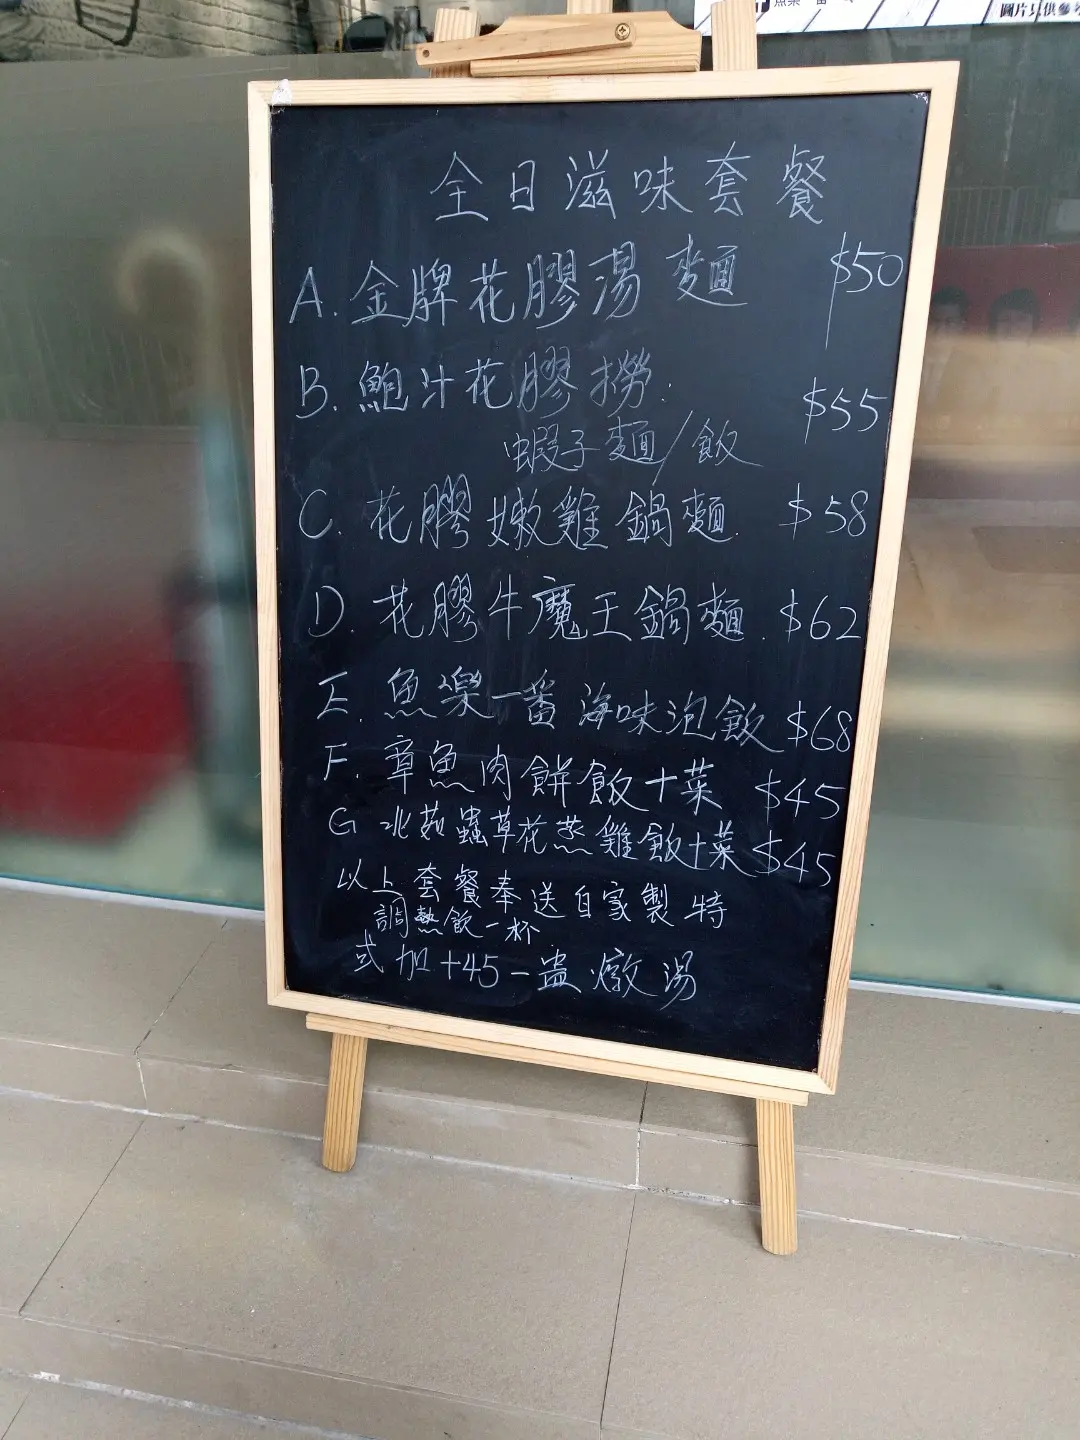 魚樂一番
圖片只供參
全日滋味套餐
A. 金牌花膠湯麵 $50
B. 鮑汁花膠撈: $55
蝦子麵/飯
C. 花膠嫩雞鍋麵 $58
D. 花膠牛魔王鍋麵. $62
E. 魚樂一番海味泡飯 $68
F. 章魚肉餅飯+菜 $45
G 北菇蟲草花蒸雞飯+菜 $45
以上套餐奉送自家製特
調熱飲一杯
或加+45一盅燉湯